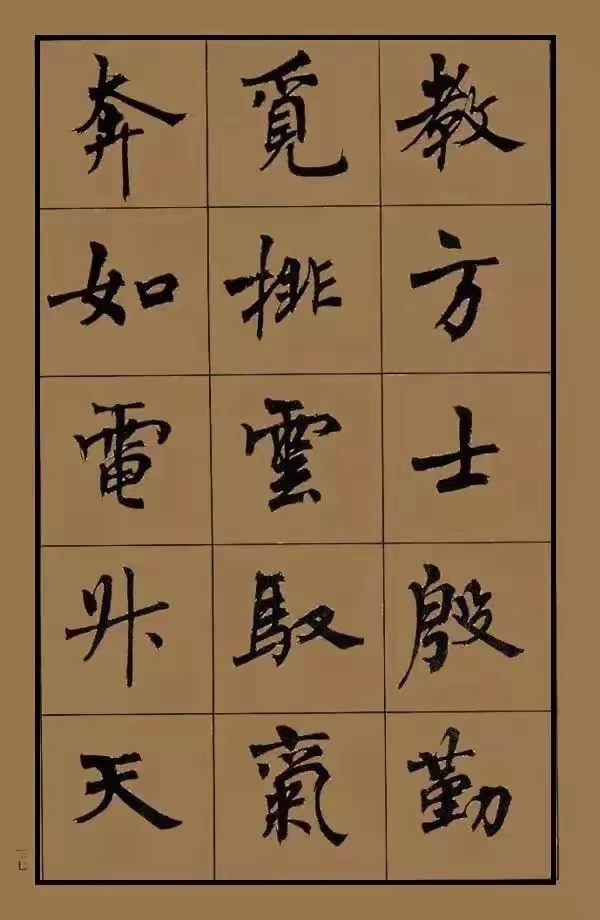 教方士殷勤
覓排雲馭氣
奔如電升天